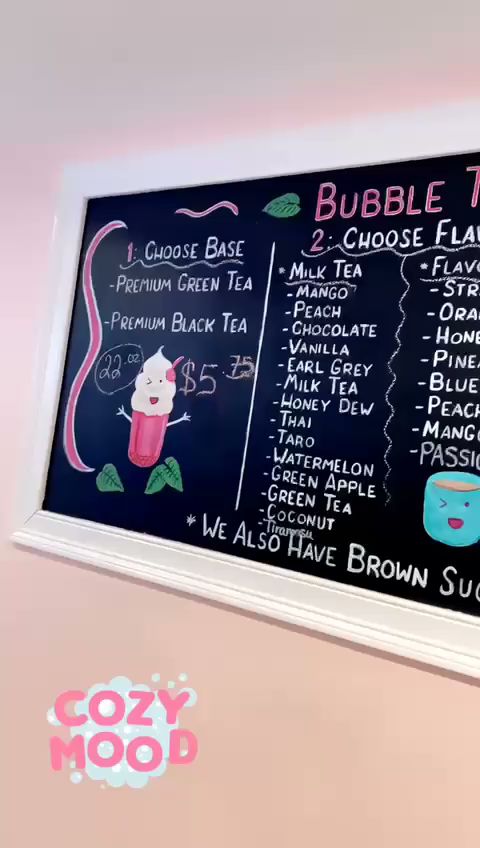 BUBBLE T
1: CHOOSE BASE
-PREMIUM GREEN TEA
-PREMIUM BLACK TEA
22.OZ
$5.75
2: CHOOSE FLAV
*MILK TEA
-MANGO
-PEACH
-CHOCOLATE
-VANILLA
-EARL GREY
-MILK TEA
-HONEY DEW
-THAI
-TARO
-WATERMELON
-GREEN APPLE
-GREEN TEA
-COCONUT
-Tiramisu
*FLAVO
-STR
-ORA
-HONE
-PINE
-BLUE
-PEACH
-MANG
-PASSIO
*WE ALSO HAVE BROWN SUG
COZY
MOOD